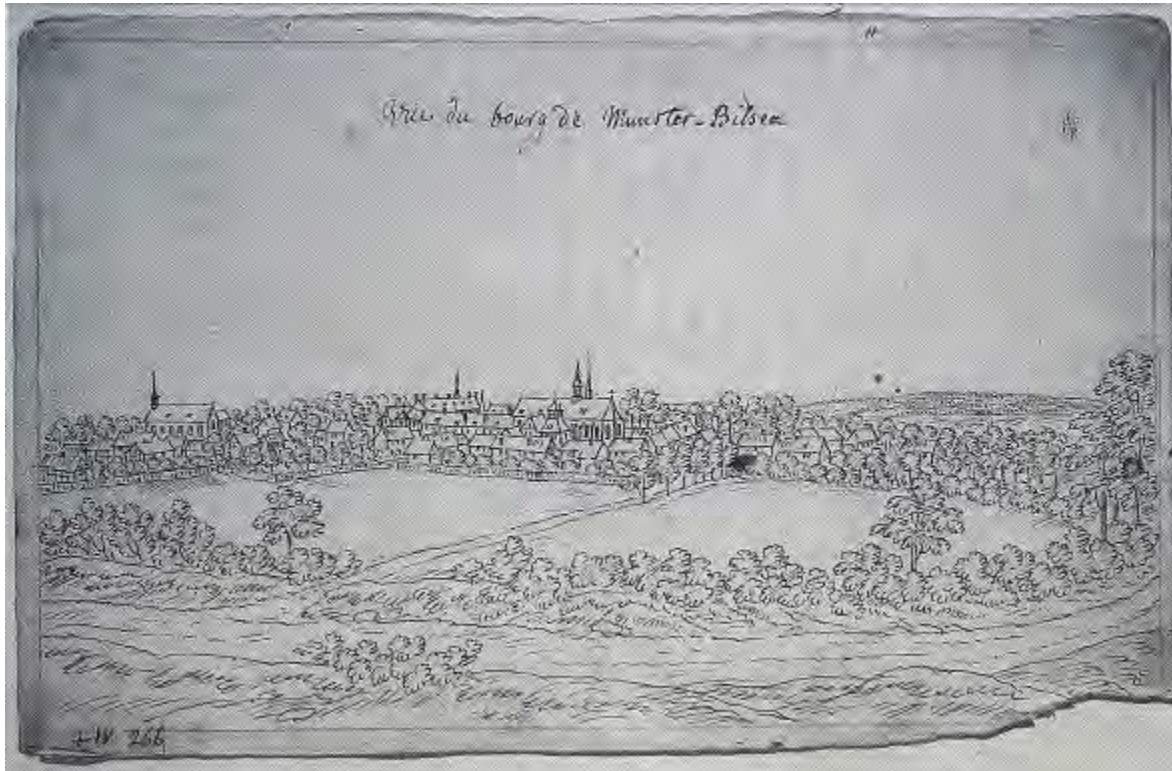 du bourg de Munster-Bilsen
266